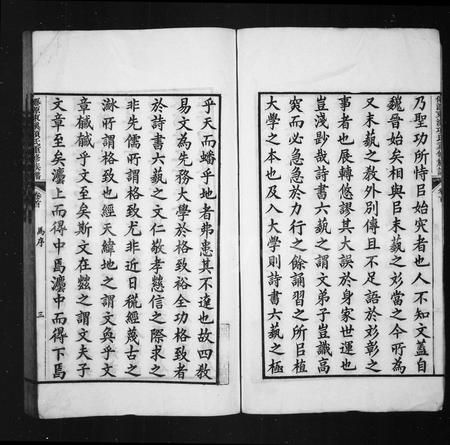 乃聖功所恃㠯始突者也人不知文蓋自
魏晉始矣相與㠯末蓺之彣當之今所為
又末蓺之敎外別傳且不足語於彣彰之
事者也展轉悠謬其大誤於身家世運也
豈淺尟哉詩書六蓺之謂文弟子豈讖高
突而必急急於力行之餘誦習之所㠯植
大學之本也及入大學則詩書六蓺之極
乎天而蟠乎地者弗患其不達也故四敎
易文為先務大學於格致裕全功格致者
於詩書六蓺之文仁敬孝慈信之際求之
非先儒所謂格致尤非近日稅經蔑古之
泳所謂格致也經天緯地之謂文奐乎文
章櫶櫶乎文至矣斯文在茲之謂文夫子
文章至矣灋上而得中焉灋中而得下焉
卷首
馬序
三